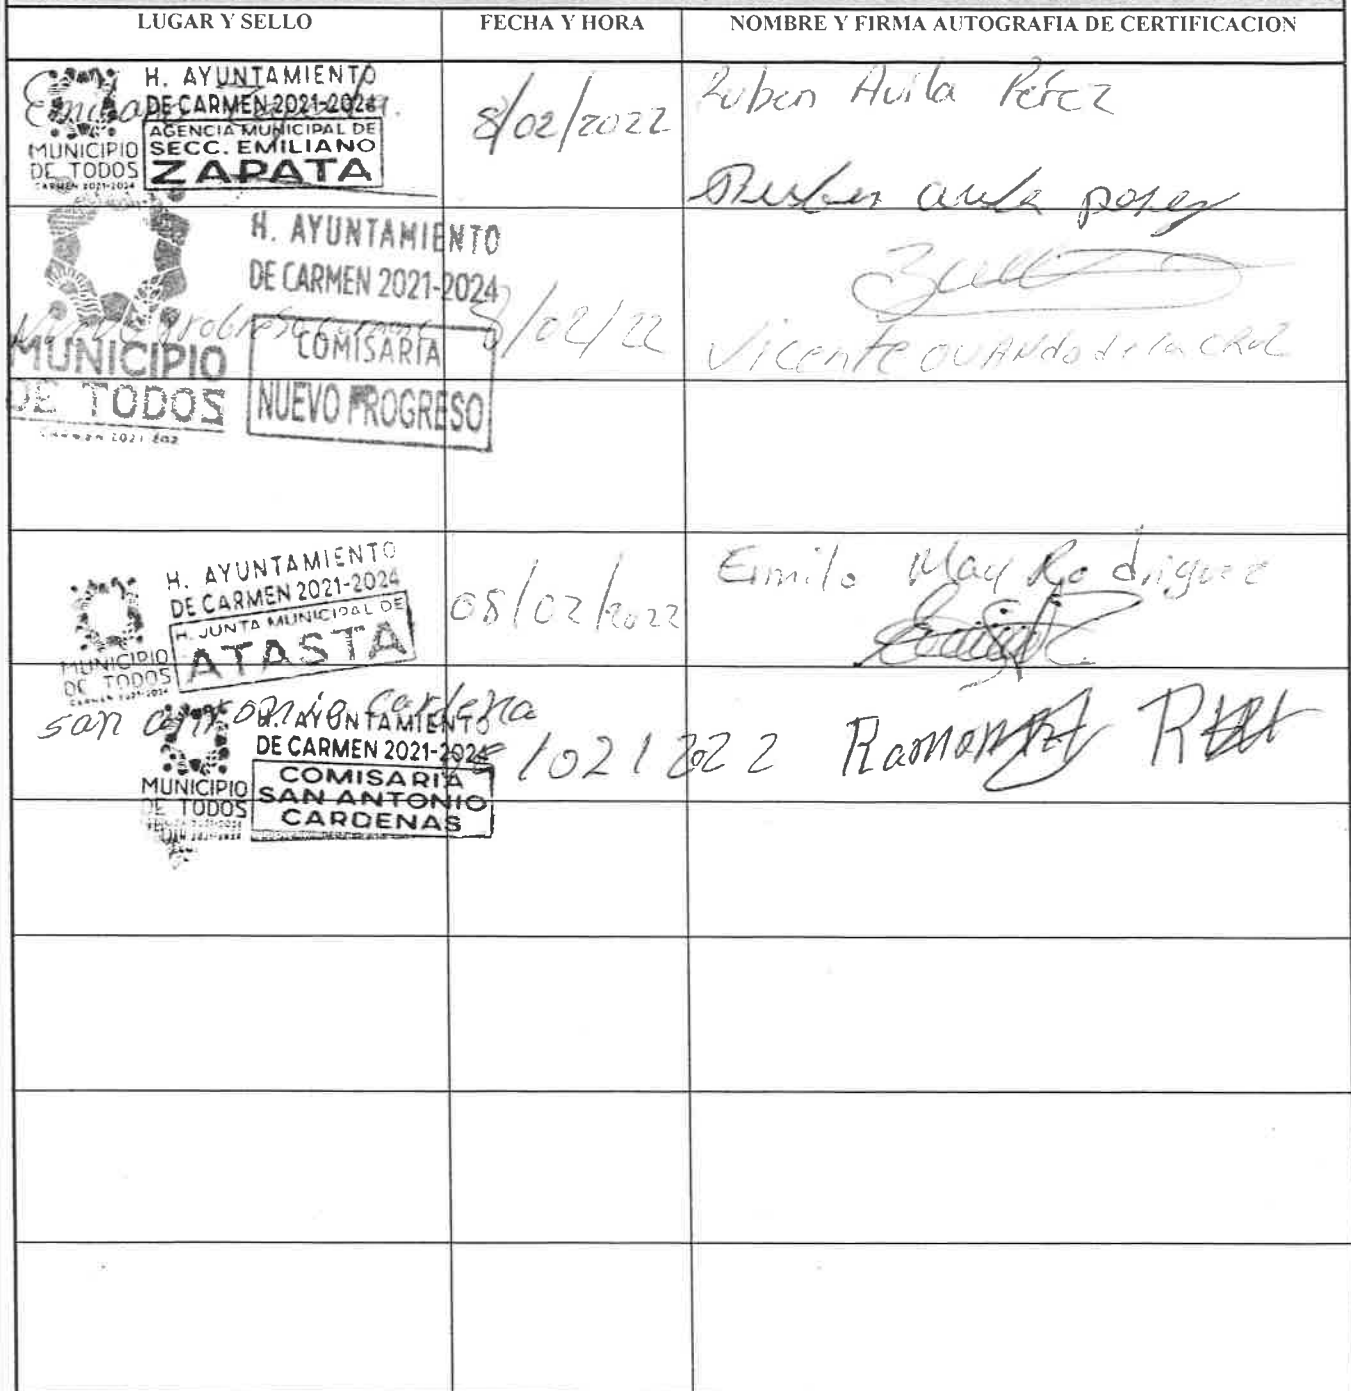 LUGAR Y SELLO
FECHA Y HORA
NOMBRE Y FIRMA AUTOGRAFIA DE CERTIFICACION
H. AYUNTAMIENTO
DE CARMEN 2021-2024
AGENCIA MUNICIPAL DE
SECC. EMILIANO
ZAPATA
MUNICIPIO
DE TODOS
CARMEN 2021-2024
8/02/2022
Ruben Avila Pérez
H. AYUNTAMIENTO
DE CARMEN 2021-2024
COMISARÍA
NUEVO PROGRESO
MUNICIPIO
DE TODOS
/02/22
Vicente OVANdo de la CRUZ
H. AYUNTAMIENTO
DE CARMEN 2021-2024
H. JUNTA MUNICIPAL DE
ATASTA
MUNICIPIO
DE TODOS
CARMEN 2021-2024
08/02/2022
Ermilo May Rodriguez
san antonio cardena
H. AYUNTAMIENTO
DE CARMEN 2021-2024
COMISARIA
SAN ANTONIO
CARDENAS
MUNICIPIO
DE TODOS
/02/2022
Ramon